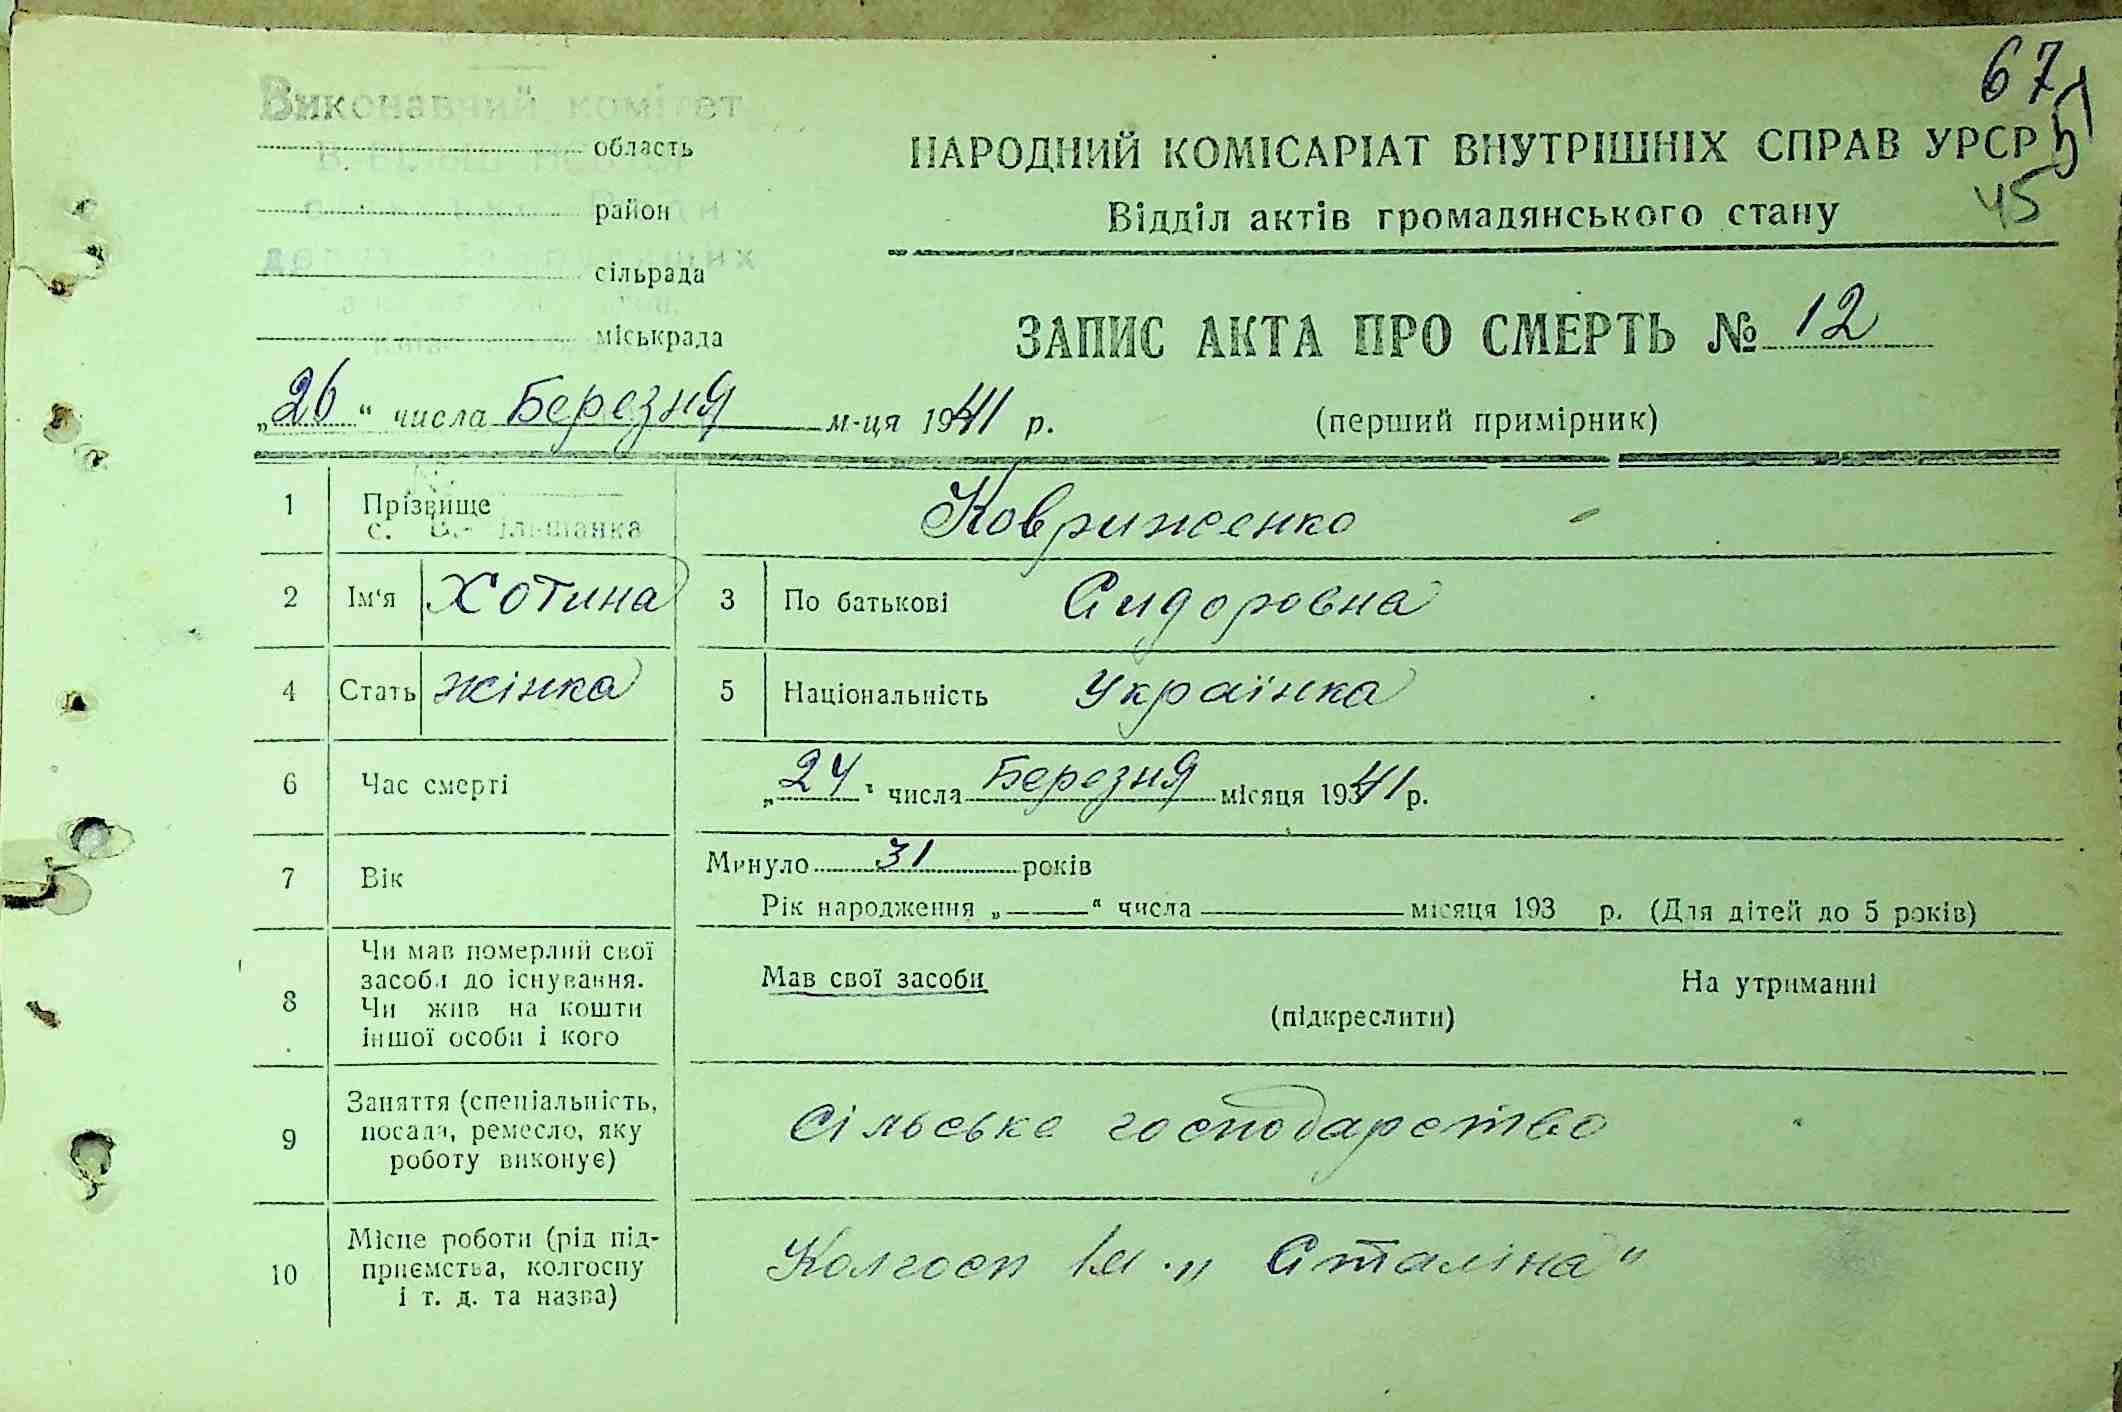 67
51
45
Виконавчий комітет
область
район
сільрада
міськрада
НАРОДНИЙ КОМІСАРІАТ ВНУТРІШНІХ СПРАВ УРСР
Відділ актів громадянського стану
ЗАПИС АКТА ПРО СМЕРТЬ № 12
„26“ числа Березня м-ця 1941 р.
(перший примірник)
1 Прізвище Ковриженко
с. В.-Вільшанка
2 Ім'я Хотина 3 По батькові Сидоровна
4 Стать жінка 5 Національність Українка
6 Час смерті „24“ числа Березня місяця 1941 р.
7 Вік Минуло 31 років
Рік народження „—“ числа — місяця 193 р. (Для дітей до 5 років)
8 Чи мав померлий свої
засоби до існування.
Чи жив на кошти
іншої особи і кого
Мав свої засоби На утриманні
(підкреслити)
9 Заняття (спеціальність,
посада, ремесло, яку
роботу виконує)
Сільське господарство
10 Місце роботи (рід під-
приємства, колгоспу
і т. д. та назва)
Колгосп ім. „Сталіна“